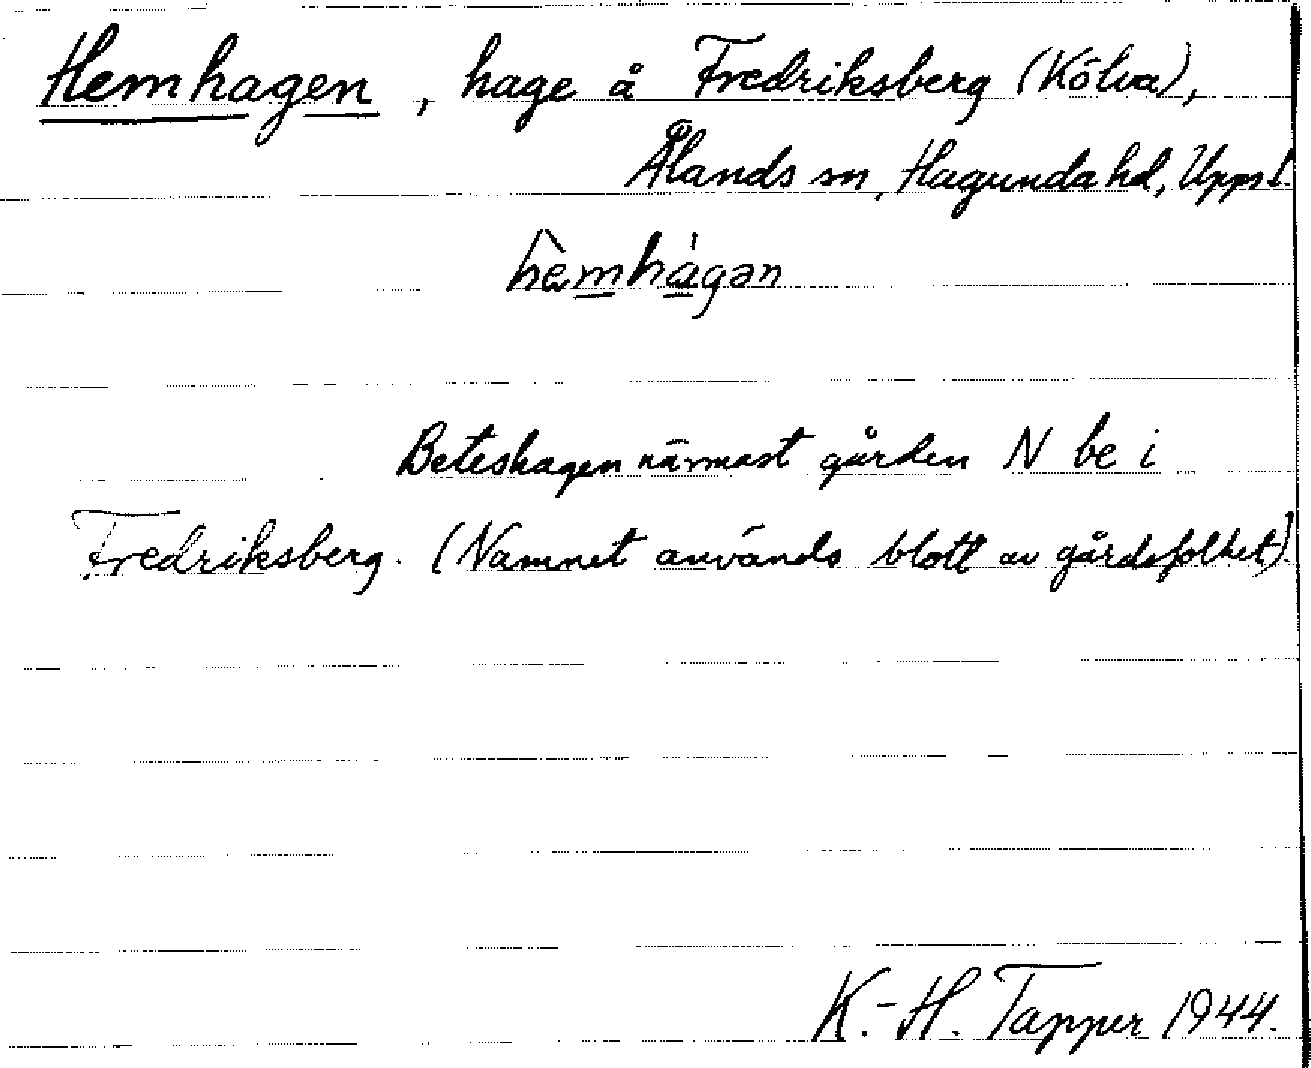 Hemhagen, hage å Fredriksberg (Kölva),
Ålands sn, Hagunda hd, Upps l.
hèmhágən
Beteshagen närmast gården N be i
Fredriksberg. (Namnet används blott av gårdsfolket).
K.-H. Tapper 1944.